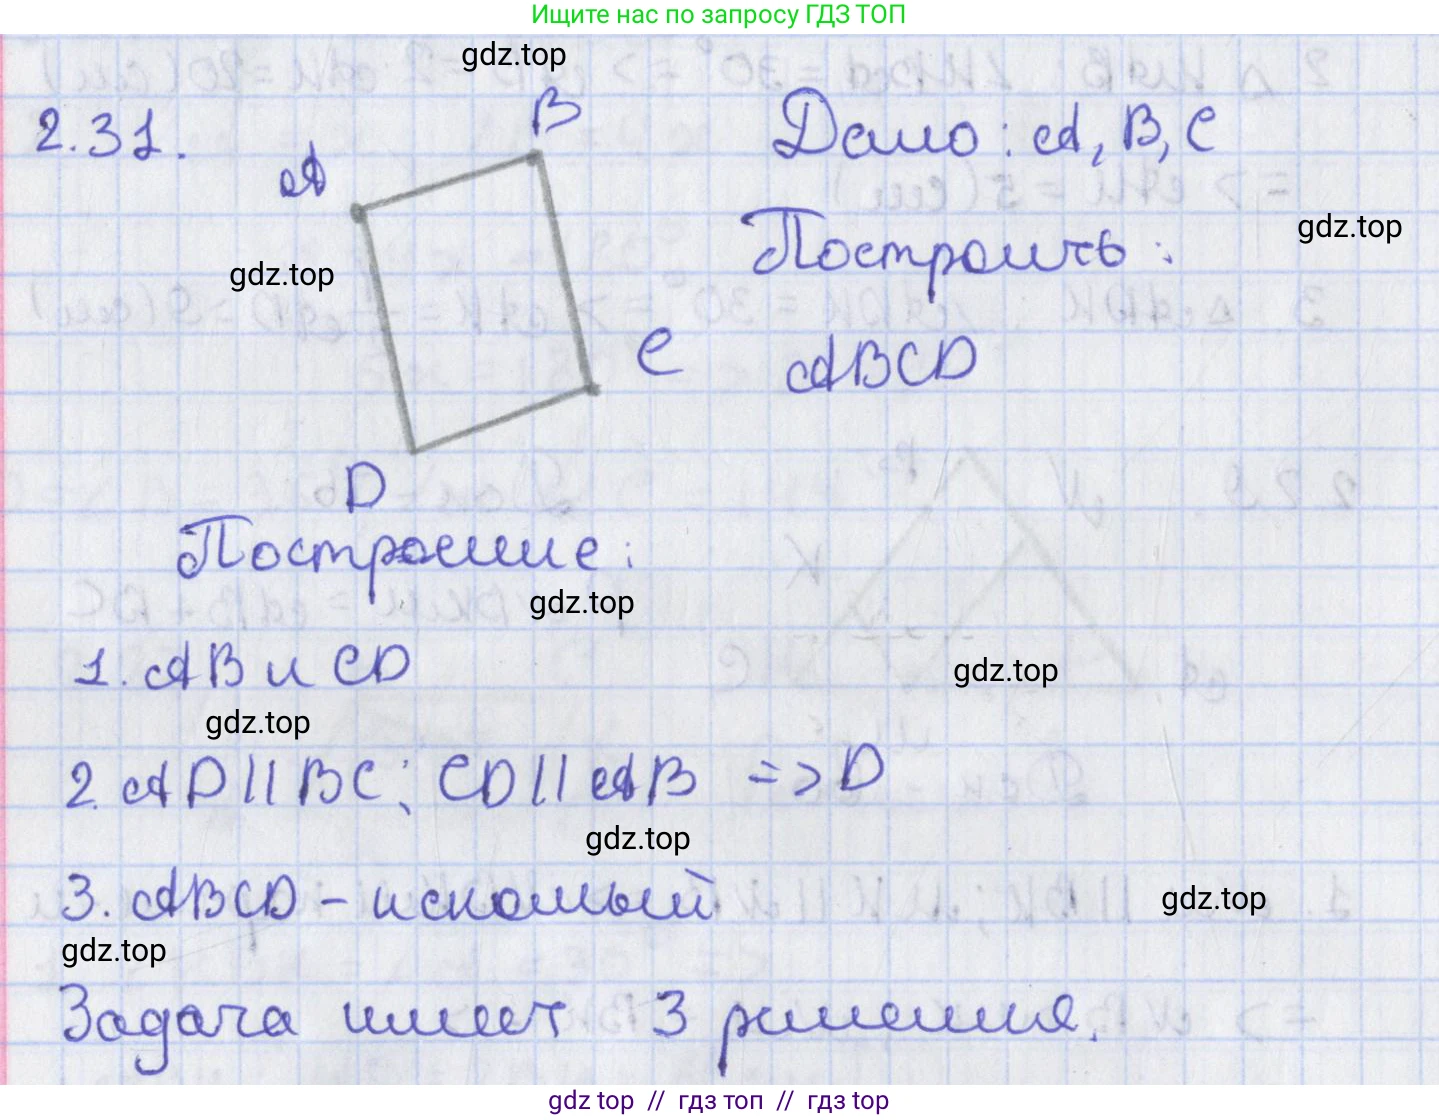 Ищите нас по запросу ГДЗ ТОП
gdz.top
2.31.
A
B
Дано: A, B, C
gdz.top
Построить:
gdz.top
C
ABCD
D
Построение:
gdz.top
1. AB и CD
gdz.top
gdz.top
2. AD || BC; CD || AB => D
gdz.top
3. ABCD – искомый
gdz.top
gdz.top
Задача имеет 3 решения.
gdz top // гдз топ // гдз top